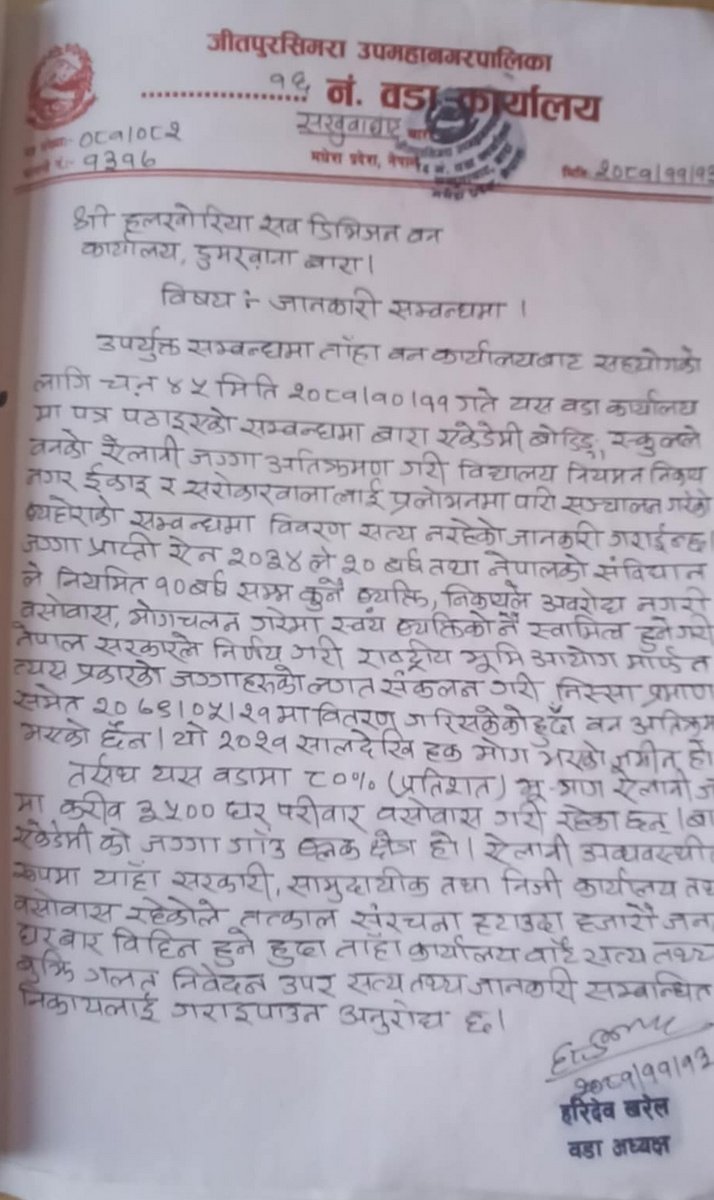 जीतपुरसिमरा उपमहानगरपालिका
१६ नं. वडा कार्यालय
०८१/०८२
मधेश प्रदेश, नेपाल
१३१६
मिति: २०८१/११/१३
श्री हलखोरिया सव डिभिजन वन
कार्यालय, डुमरवाना बारा।
विषय :- जानकारी सम्वन्धमा ।
उपर्युक्त सम्वन्धमा ताँहा वन कार्यालयबाट सहयोगको
लागि च.न ४५ मिति २०८१/१०/११ गते यस वडा कार्यालय
मा पत्र पठाइएको सम्वन्धमा बारा एकेडेमी बोर्डिङ्ग स्कुलले
वनको ऐलानी जग्गा अतिक्रमण गरी विद्यालय नियमन निकाय
नगर ईकाइ र सरोकारवालालाई प्रलोभनमा पारी सञ्चालन गरेको
व्यहोराको सम्वन्धमा विवरण सत्य नरहेको जानकारी गराईन्छ।
जग्गा प्राप्ती ऐन २०३४ ले २० बर्ष तथा नेपालको संविधान
ले नियमित १० बर्ष सम्म कुनै व्यक्ति, निकायले अवरोध नगरी
वसोवास, भोगचलन गरेमा स्वयं व्यक्तिको नै स्वामित्व हुने गरी
नेपाल सरकारले निर्णय गरी राष्ट्रीय भूमि आयोग मार्फत
त्यस प्रकारको जग्गाहरुको लगत संकलन गरी निस्सा प्रमाण
समेत २०७९/०५/२१ मा वितरण गरिसकेको हुँदा वन अतिक्रम
भएको छैन। यो २०२१ सालदेखि हक भोग भएको जमीन हो
तर्सथ यस वडामा ८०% (प्रतिशत) भू-भाग ऐलानी ज
मा करीव ३५०० घर परीवार वसोवास गरी रहेका छन्। बा
एकेडेमी को जग्गा गाँउ ब्लक क्षेत्र हो। ऐलानी अव्यवस्थी
रूपमा याहाँ सरकारी, सामुदायीक तथा निजी कार्यालय तथ
वसोवास रहेकोले तत्काल संरचना हटाउदा हजारौं जन
घरबार विहिन हुने हुदा ताँहा कार्यालय वाट सत्य तथ्य
बुझि गलत निवेदन उपर सत्य तथ्य जानकारी सम्वन्धित
निकायलाई गराइपाउन अनुरोध छ।
२०८१/११/१३
हरिदेव खरेल
वडा अध्यक्ष